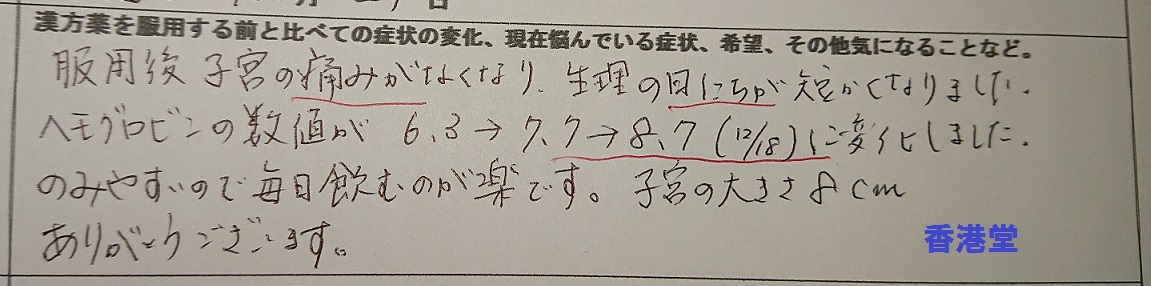 漢方薬を服用する前と比べての症状の変化、現在悩んでいる症状、希望、その他気になることなど。
服用後 子宮の痛みがなくなり、生理の日にちが短かくなりました.
ヘモグロビンの数値が 6.3→7.7→8.7(12/18)に変化しました.
のみやすいので毎日飲むのが楽です。子宮の大きさ8cm
ありがとうございます。
香港堂